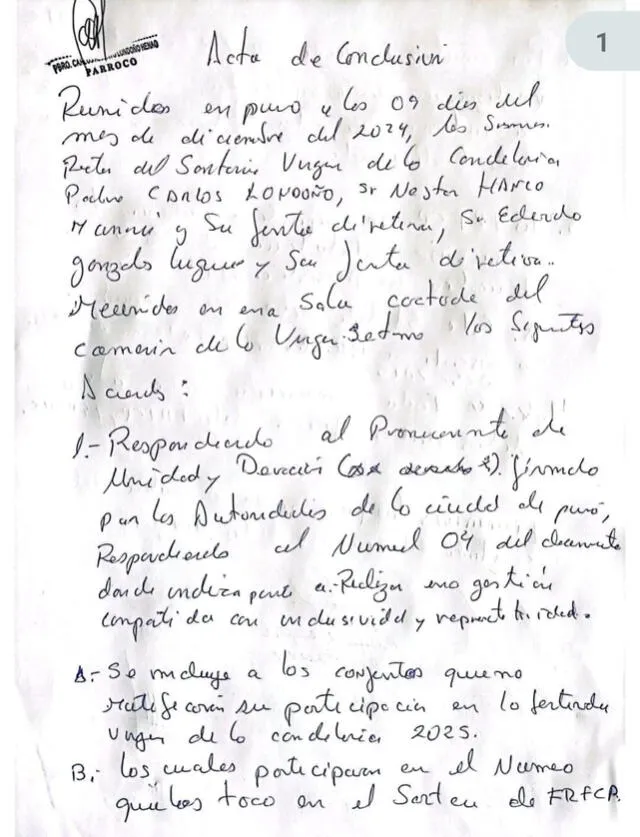 1
PBRO. CA LONDOÑO HENAO
PARROCO
Acta de Conclusión
Reunidos en puno a los 09 dias del
mes de diciembre del 2024, los
Rector del Santuario Virgen de la Candelaria
Padre CARLOS LONDOÑO, Sr Nestor MARCO
Mamani y Su Junta directiva, Sr. Ederdo
gonzalo luque y Su Junta directiva..
Reunidos en ena Sala contada del
camarin de la Virgen los Seguntes
Acuerds :
1.- Respondiendo al Pronunciamento de
Unidad y Devoción firmado
por las Autoridades de la ciudad de puno,
Respondiendo al Numeral 04 del documento
donde indica punto a.- Realizar una gestión
compartida con inclusividad y representatividad.
A.- Se incluye a los conjuntos que no
ratificaron su participacion en la festividad
virgen de la candelaria 2025.
B.- los cuales participaran en el Numero
que les toco en el Sorteo de FRFCP.